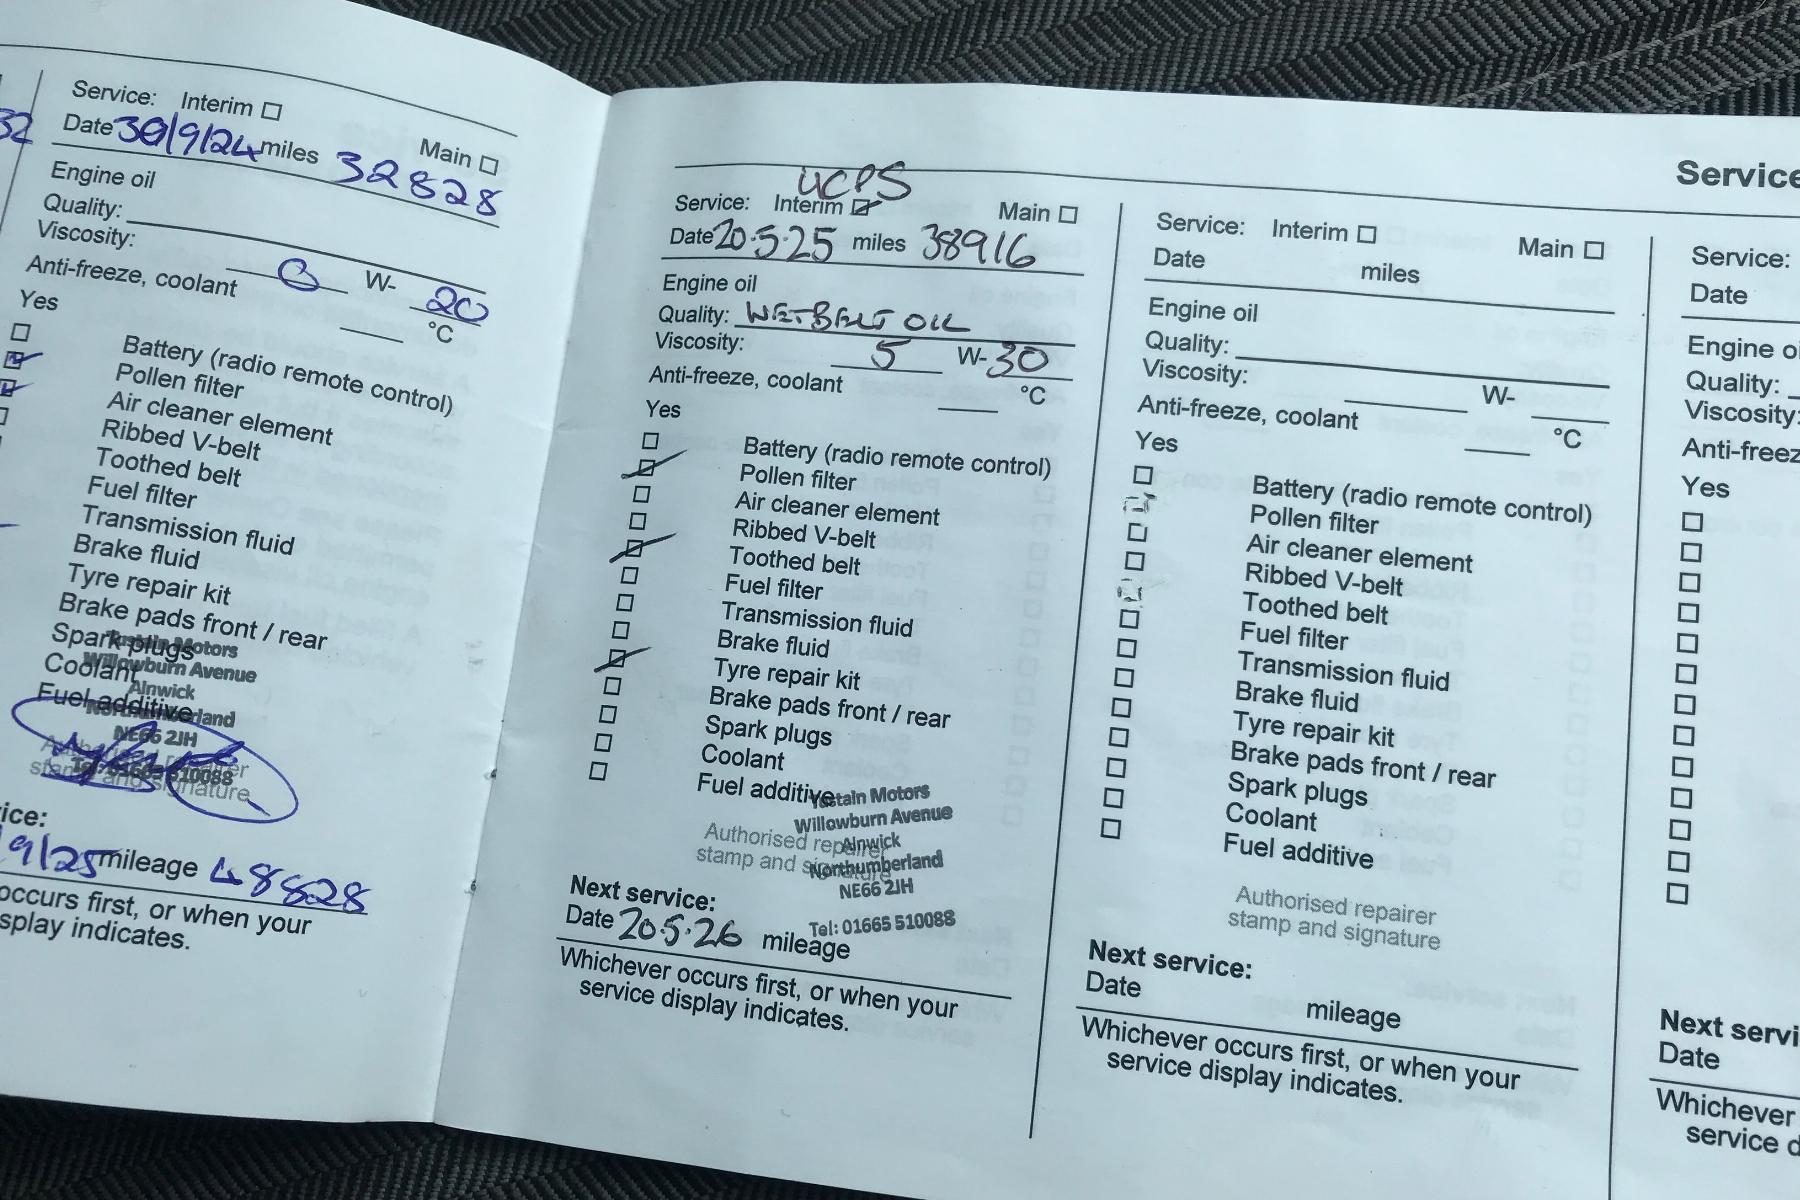 32
Service: Interim
Main
Date 30/9/24 miles 32828
Engine oil
Quality:
Viscosity: 0 W- 20
Anti-freeze, coolant °C
Yes
Battery (radio remote control)
Pollen filter
Air cleaner element
Ribbed V-belt
Toothed belt
Fuel filter
Transmission fluid
Brake fluid
Tyre repair kit
Brake pads front / rear
Spark plugs
Coolant
Fuel additive
Motors
Willowburn Avenue
Alnwick
Northumberland
NE66 2JH
Authorised repairer
stamp and signature
Tel: 01665 510088
ice:
9/25 mileage 48828
occurs first, or when your
splay indicates.
Service
UCPS
Service: Interim Main
Date 20.5.25 miles 38916
Engine oil
Quality: WETBELT OIL
Viscosity: 5 W- 30
Anti-freeze, coolant °C
Yes
Battery (radio remote control)
Pollen filter
Air cleaner element
Ribbed V-belt
Toothed belt
Fuel filter
Transmission fluid
Brake fluid
Tyre repair kit
Brake pads front / rear
Spark plugs
Coolant
Fuel additive
Motors
Willowburn Avenue
Alnwick
Northumberland
NE66 2JH
Tel: 01665 510088
Authorised repairer
stamp and signature
Next service:
Date 20.5.26 mileage
Whichever occurs first, or when your
service display indicates.
Service: Interim Main
Date miles
Engine oil
Quality:
Viscosity: W-
Anti-freeze, coolant °C
Yes
Battery (radio remote control)
Pollen filter
Air cleaner element
Ribbed V-belt
Toothed belt
Fuel filter
Transmission fluid
Brake fluid
Tyre repair kit
Brake pads front / rear
Spark plugs
Coolant
Fuel additive
Authorised repairer
stamp and signature
Next service:
Date mileage
Whichever occurs first, or when your
service display indicates.
Service:
Date
Engine oi
Quality:
Viscosity:
Anti-freez
Yes
Next servi
Date
Whichever
service d